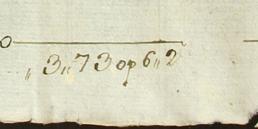 o
„ 3„ 7 3 op 6„ 2